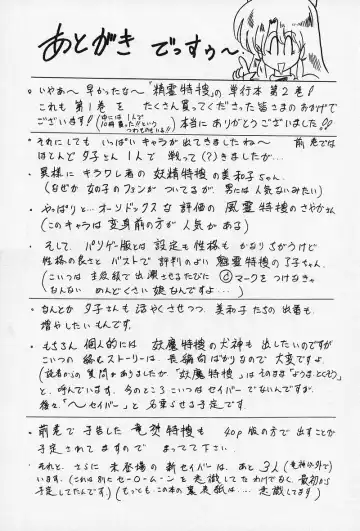 あとがき でっすぅ〜・
・いやぁ〜早かったな〜"精霊特捜"の単行本第2巻!
これも第1巻をたくさん買ってくださった皆さまのおかげで
ございます!(中には1人で10冊買った!!というつわものもいる!!)本当にありがとうございました!!
・それにしてもいっぱいキャラが出てきましたね〜 前巻では
ほとんど夕子さん1人で戦って(?)きましたが…
・異様にキラワレ者の妖精特捜の美和子ちゃん。
(なぜか女の子のファンがついてるが、男には人気ないみたい)
・やっぱりと…オーソドックスな評価の風霊特捜のさやかさん
(このキャラは変身前の方が人気がある)
・そして、パソゲ版とは設定も性格もかなりちがうけど
性格の良さとバストで評判のよい魅霊特捜のJ子ちゃん。
(こいつは主役級で出演させるたびに Ⓒマークをつけなきゃ
なんない めんどくさい娘なんですよ…)
・なんとか夕子さんも活やくさせつつ、美和子たちの出番も
増やしたいもんです。
・もちろん個人的には妖魔特捜の犬神も出したいのですが
こいつの絡むストーリーは、長編向ばかりなので大変ですよ。
(読者からの質問がありましたが「妖魔特捜」はそのまま「ようまとくそう」
と、呼んでいます。今のところこいつはセイバーでないんですが、
後々、「〜セイバー」と名乗らせる予定です。
・前巻で予告した竜焚特捜も 40p版の方で出すことが
予定されてますので まってて下さい.
・それと、さらに未登場の新セイバーは、あと3人(竜神以外で)
います。(これは別にセーラームーンを意識してたわけでなく、最初から
予定してたんです。)(もっとも、この本の裏表紙は…意識してます)